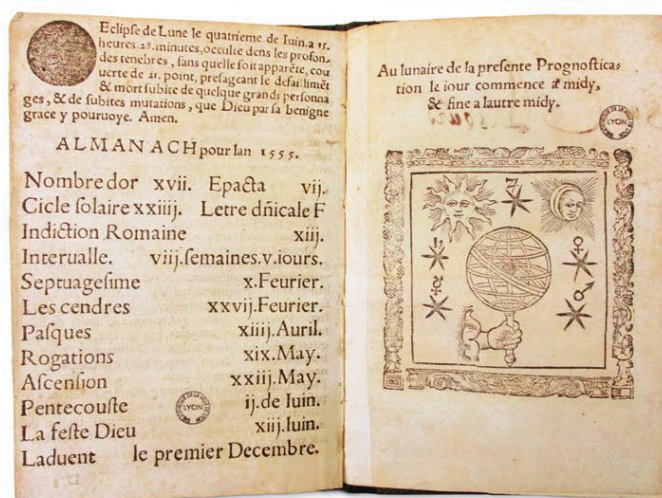 Eclipſe de Lune le quatrieme de Iuin. a 15.
heures. 28. minutes, occulte dens les profon-
des tenebres, ſans quelle ſoit apparẽte, cou
uerte de 21. point, preſageant le defaillimẽt
& mort ſubite de quelque grands perſonna
ges, & de ſubites mutations, que Dieu par ſa benigne
grace y pouruoye. Amen.
ALMANACH pour lan 1555.
Nombre dor xvij. Epacta vij.
Cicle ſolaire xxiiij. Letre dñicale F
Indiction Romaine xiij.
Interualle. viij. ſemaines. v. iours.
Septuageſime x. Feurier.
Les cendres xxvij. Feurier.
Paſques xiiij. Auril.
Rogations xix. May.
Aſcenſion xxiij. May.
Pentecouſte ij. de Iuin.
LYON
La feſte Dieu xiij. Iuin.
Laduent le premier Decembre.
Au lunaire de la preſente Prognoſtica-
tion le iour commence a midy,
& fine a lautre midy.
LYON